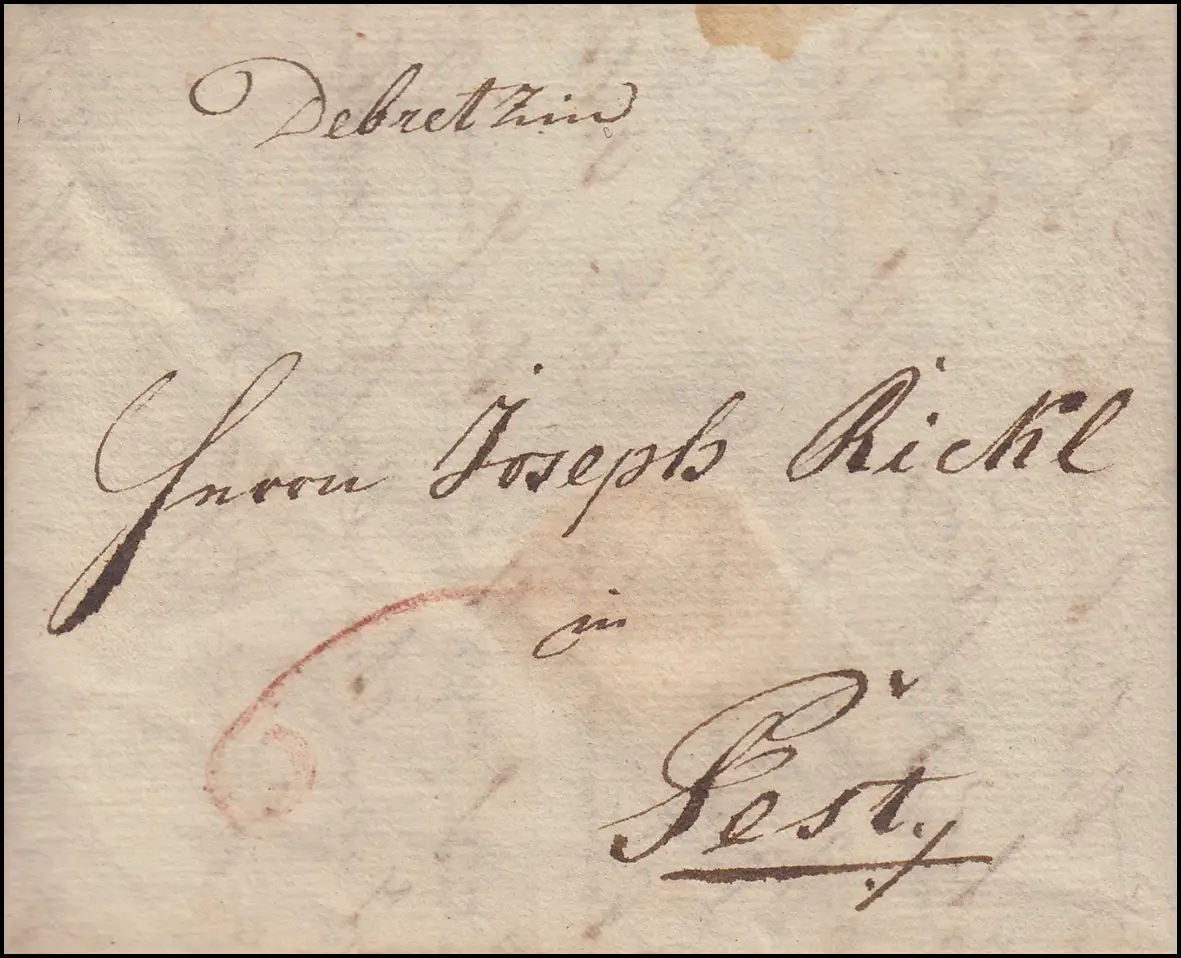 Debretzin
Herrn Joseph Rickl
in
Pest
6